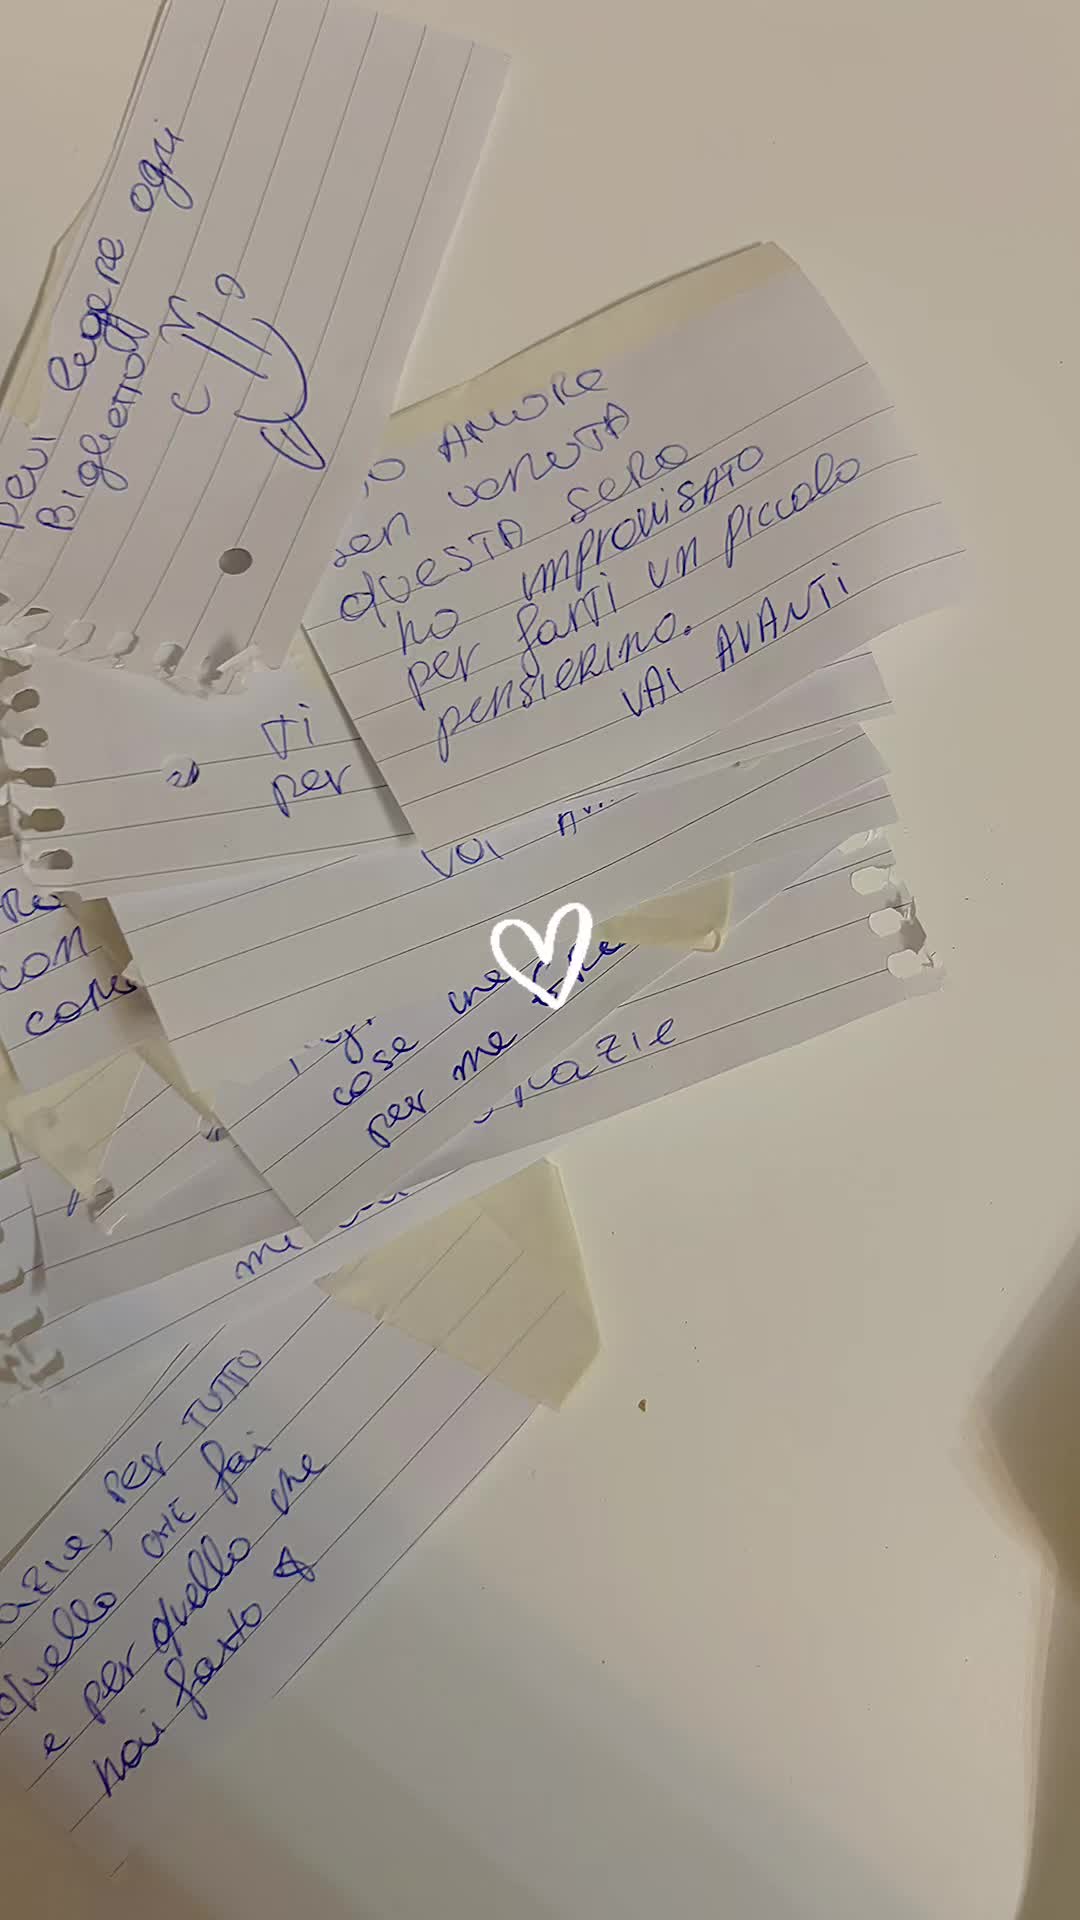 DEVI leggere ogni
Biglietto
AMORE
ben venuta
questa sera
ho improvisato
per farti un piccolo
pensierino.
VAI AVANTI
Ti
per
VAI
con
come
cose che
per me
grazie
me
per TUTTO
quello che fai
e per quello che
hai fatto